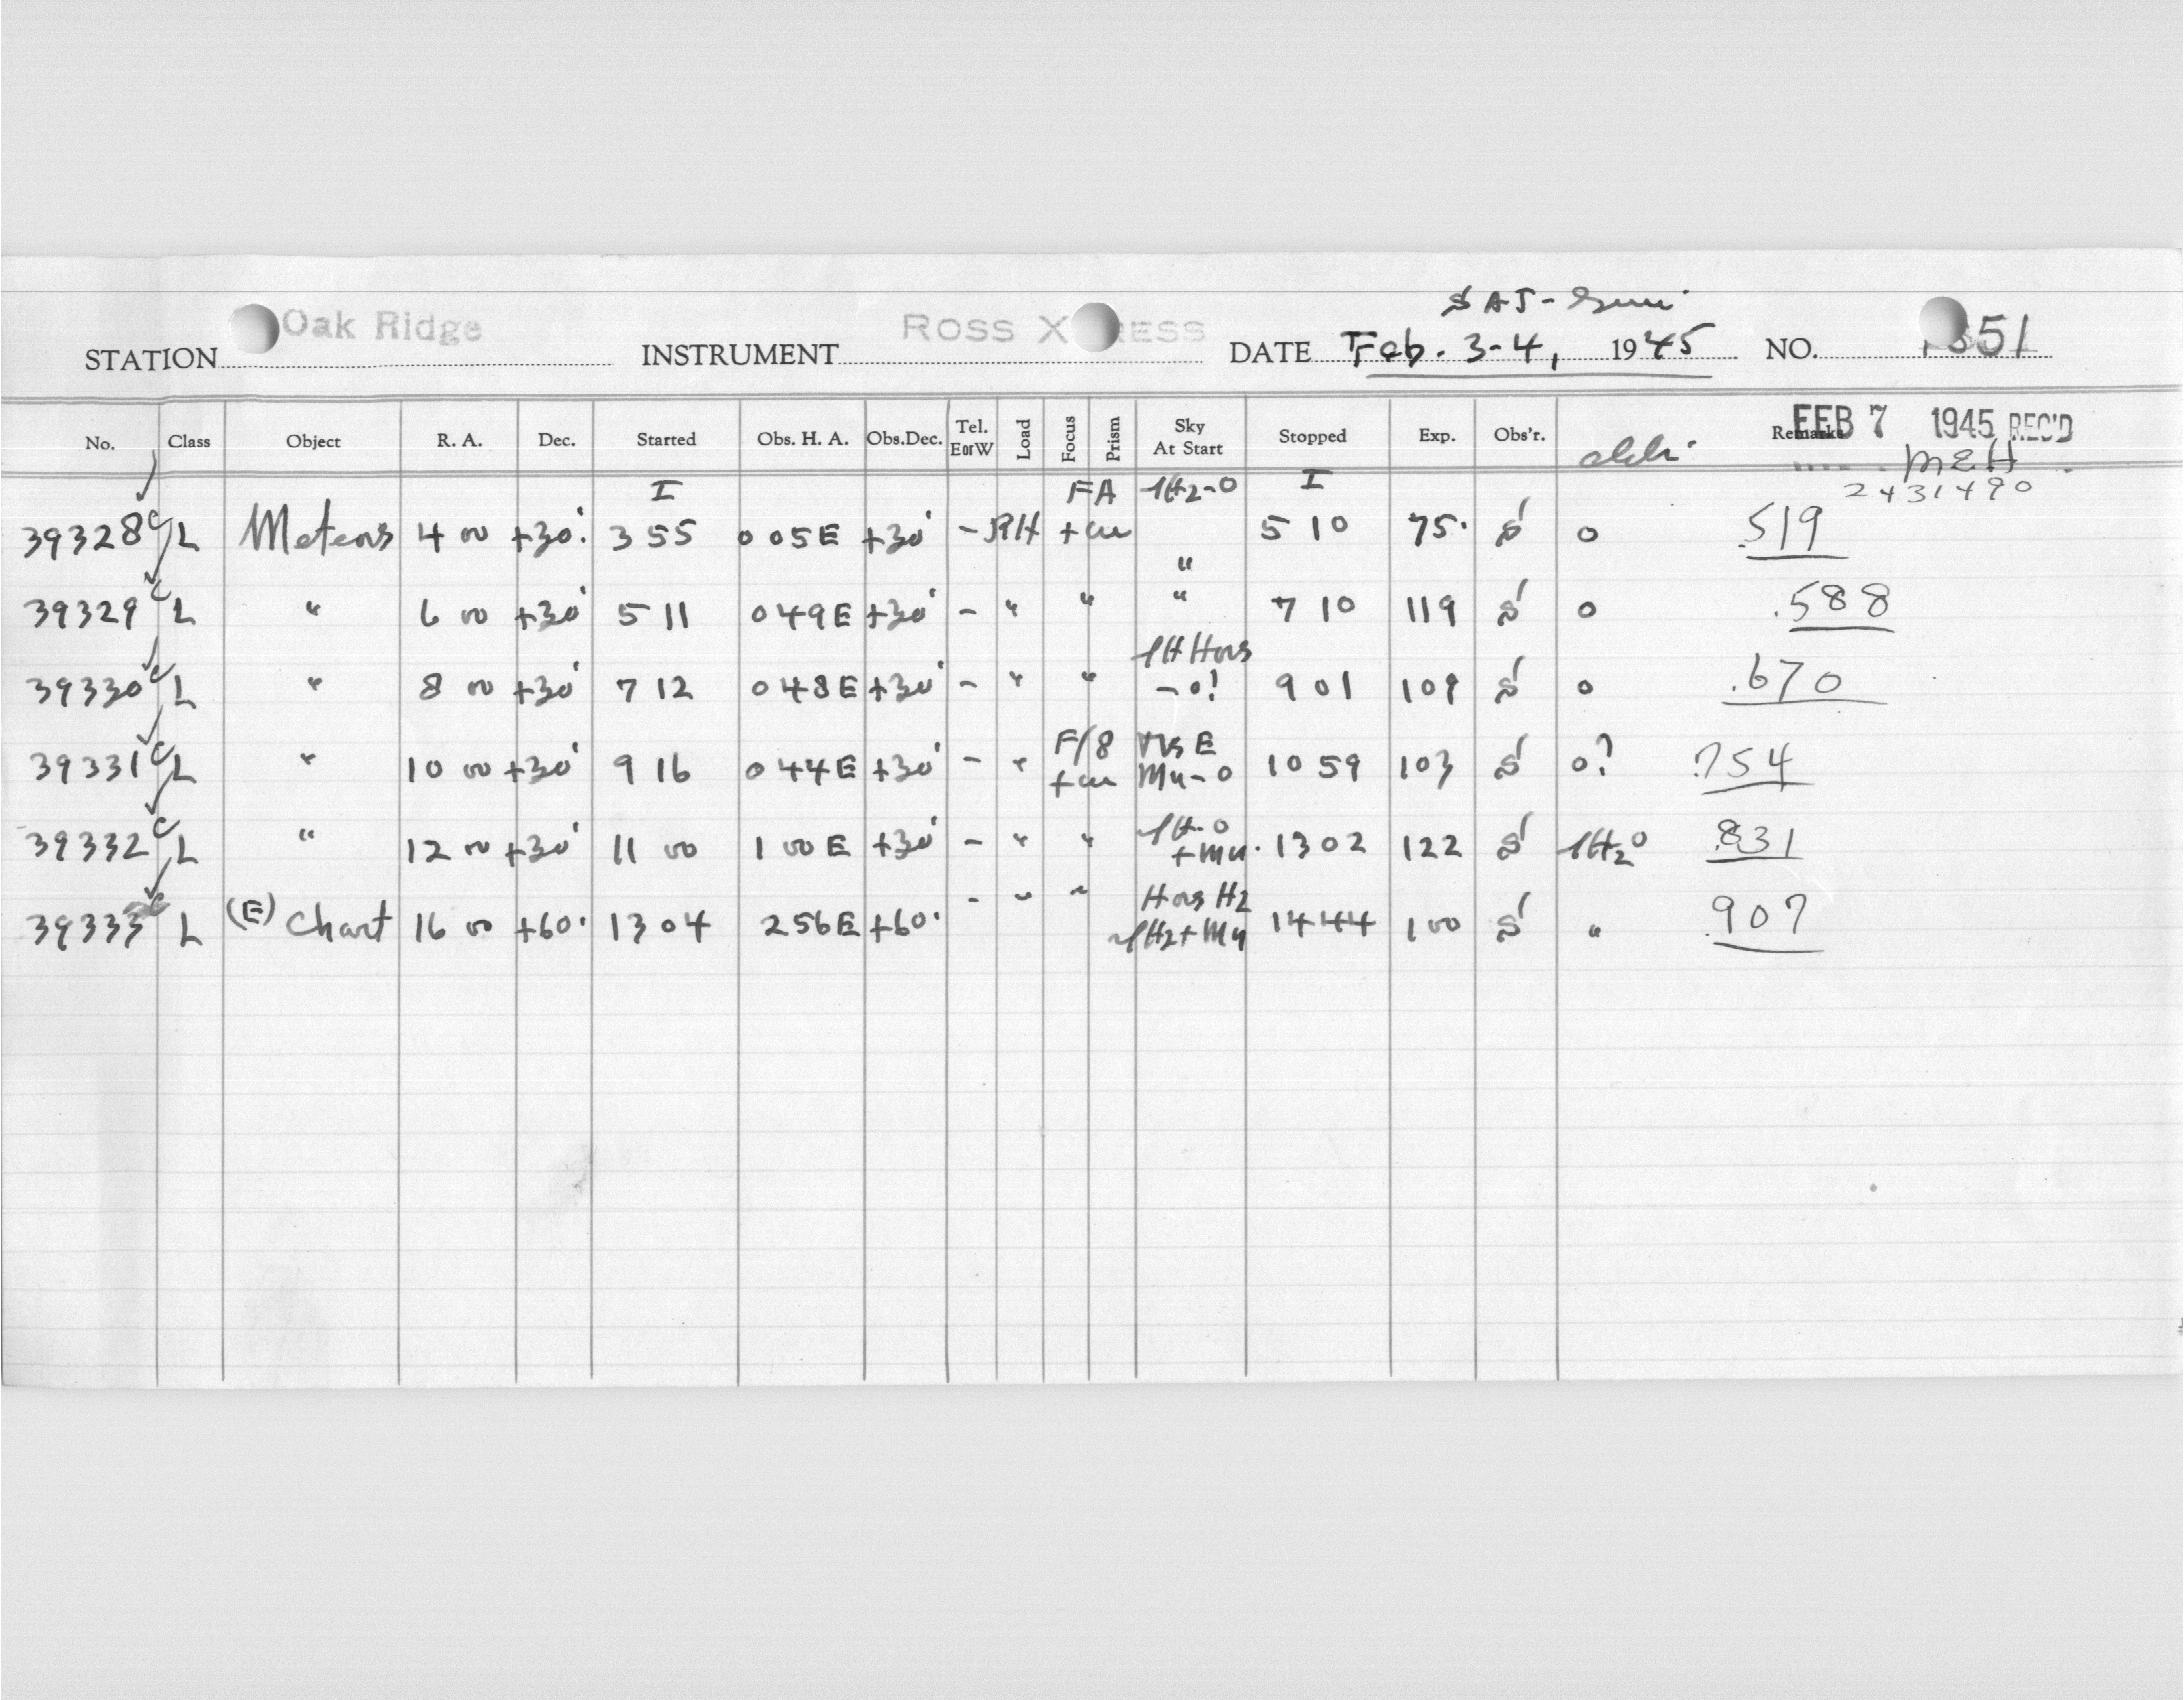 SAT-Sun.
STATION Oak Ridge INSTRUMENT ROSS X RESS DATE Feb. 3-4, 1945 NO. 51
No. Class Object R. A. Dec. Started Obs. H. A. Obs.Dec. Tel. E or W Load Focus Prism Sky At Start Stopped Exp. Obs'r. Remarks
FEB 7 1945 REC'D
MEH
2431490
I FA H2-0 I
39328 c L Meteors 4 00 +30° 3 55 0 05E +30° - RH + cu 5 10 75. S 0 .519
"
39329 c L " 6 00 +30° 5 11 0 49E +30° - " " " 7 10 119 S 0 .588
39330 c L " 8 00 +30° 7 12 0 48E +30° - " " -0! 9 01 109 S 0 .670
F/8
39331 c L " 10 00 +30° 9 16 0 44E +30° - " + cu Mu-0 10 59 103 S 0? .754
39332 c L " 12 00 +30° 11 00 1 00E +30° - " " + Mu. 13 02 122 S .831
39333 c L (E) Chart 16 00 +60° 13 04 2 56E +60° - " " H2+Mu 14 44 100 S " .907